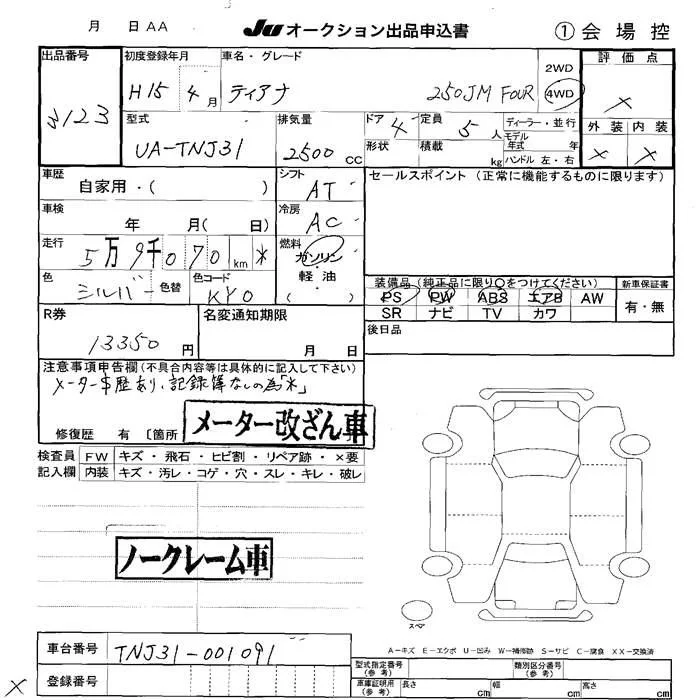 月 日 AA Ju オークション出品申込書 ① 会場控
出品番号 初度登録年月 車名・グレード 評価点
3123 H15 4月 ティアナ 250JM FOUR 2WD 4WD ×
型式 排気量 ドア 4 定員 5人 ディーラー・並行 外装 内装
UA-TNJ31 2500CC 形状 積載 kg モデル年式 年 ハンドル 左・右 × ×
車歴 自家用・( ) シフト AT セールスポイント (正常に機能するものに限ります)
車検 年 月( 日) 冷房 AC
走行 5万9千070km * 燃料 ガソリン 軽・油 ( )
色 シルバー 色替 色コード KY0
装備品 (純正品に限り○をつけてください) 新車保証書
PS PW ABS エアB AW 有・無
SR ナビ TV カワ
R券 13350円 名変通知期限 月 日 後日品
注意事項申告欄 (不具合内容等は具体的に記入して下さい)
メーター車歴あり、記録簿なしの為「*」
メーター改ざん車
修復歴 有 〔箇所
検査員記入欄 FW キズ・飛石・ヒビ割・リペア跡・×要
内装 キズ・汚レ・コゲ・穴・スレ・キレ・破レ
ノークレーム車
スペア
A-キズ E-エクボ U-凹み W-補修跡 S-サビ C-腐食 XX-交換済
車台番号 TNJ31-001091 型式指定番号(参考) 類別区分番号(参考)
× 登録番号 車庫証明用(参考) 長さ cm 幅 cm 高さ cm